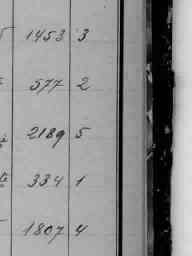 1453 3
577 2
2189 5
334 1
1807 4